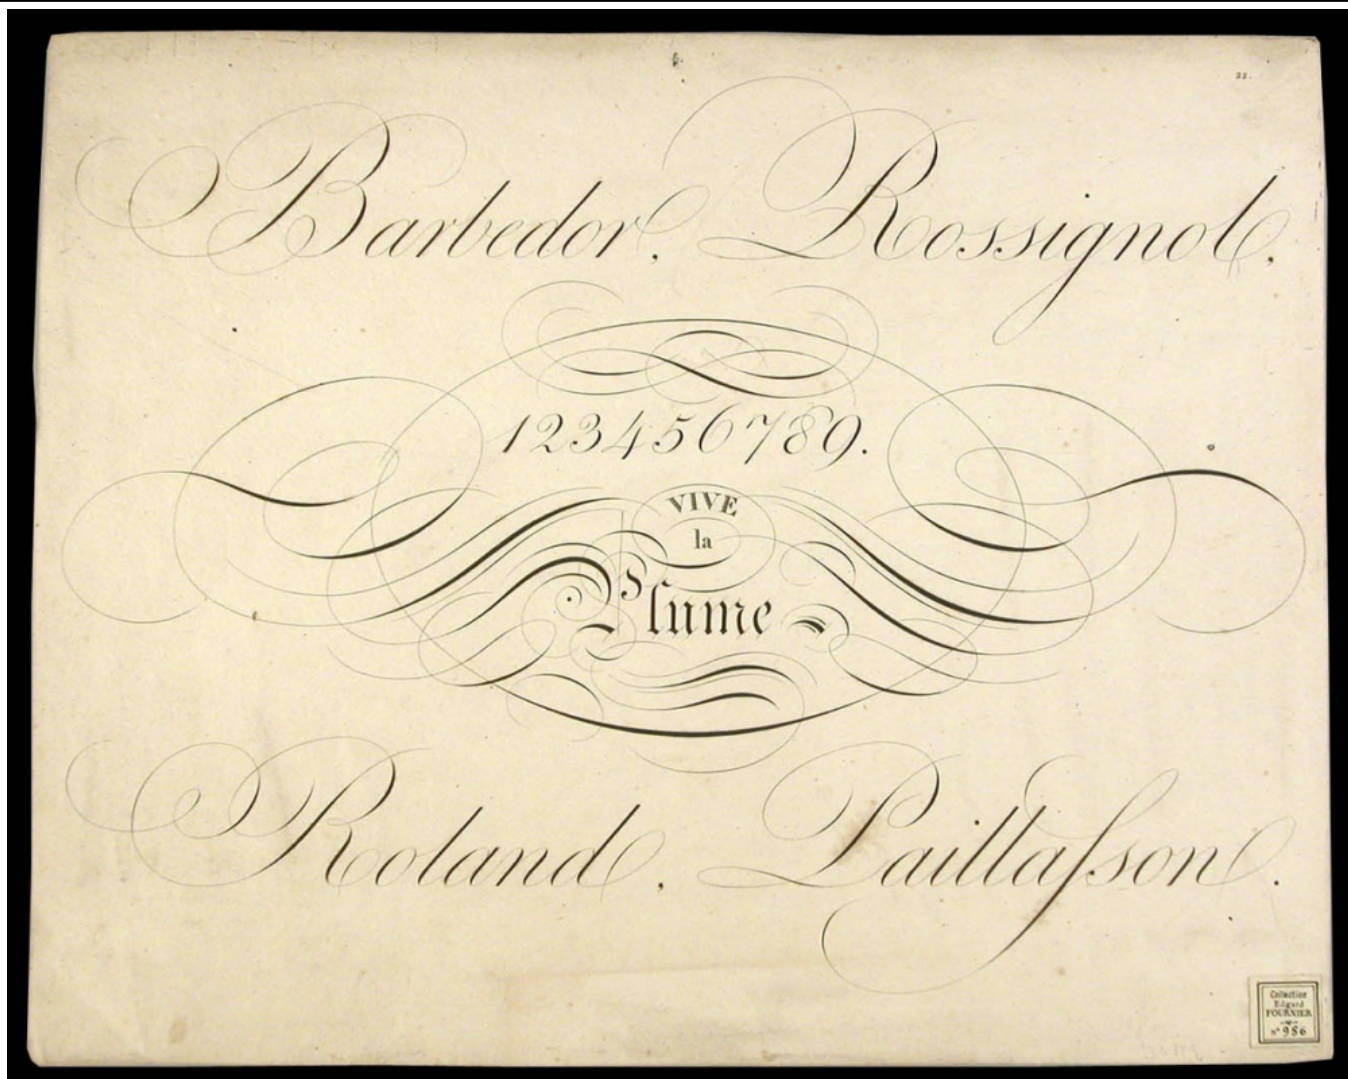 22.
Barbedor, Rossignol.
123456789.
VIVE
la
Plume
Roland, Paillaſson.
Collection
Edgard
FOURNIER
nº 986